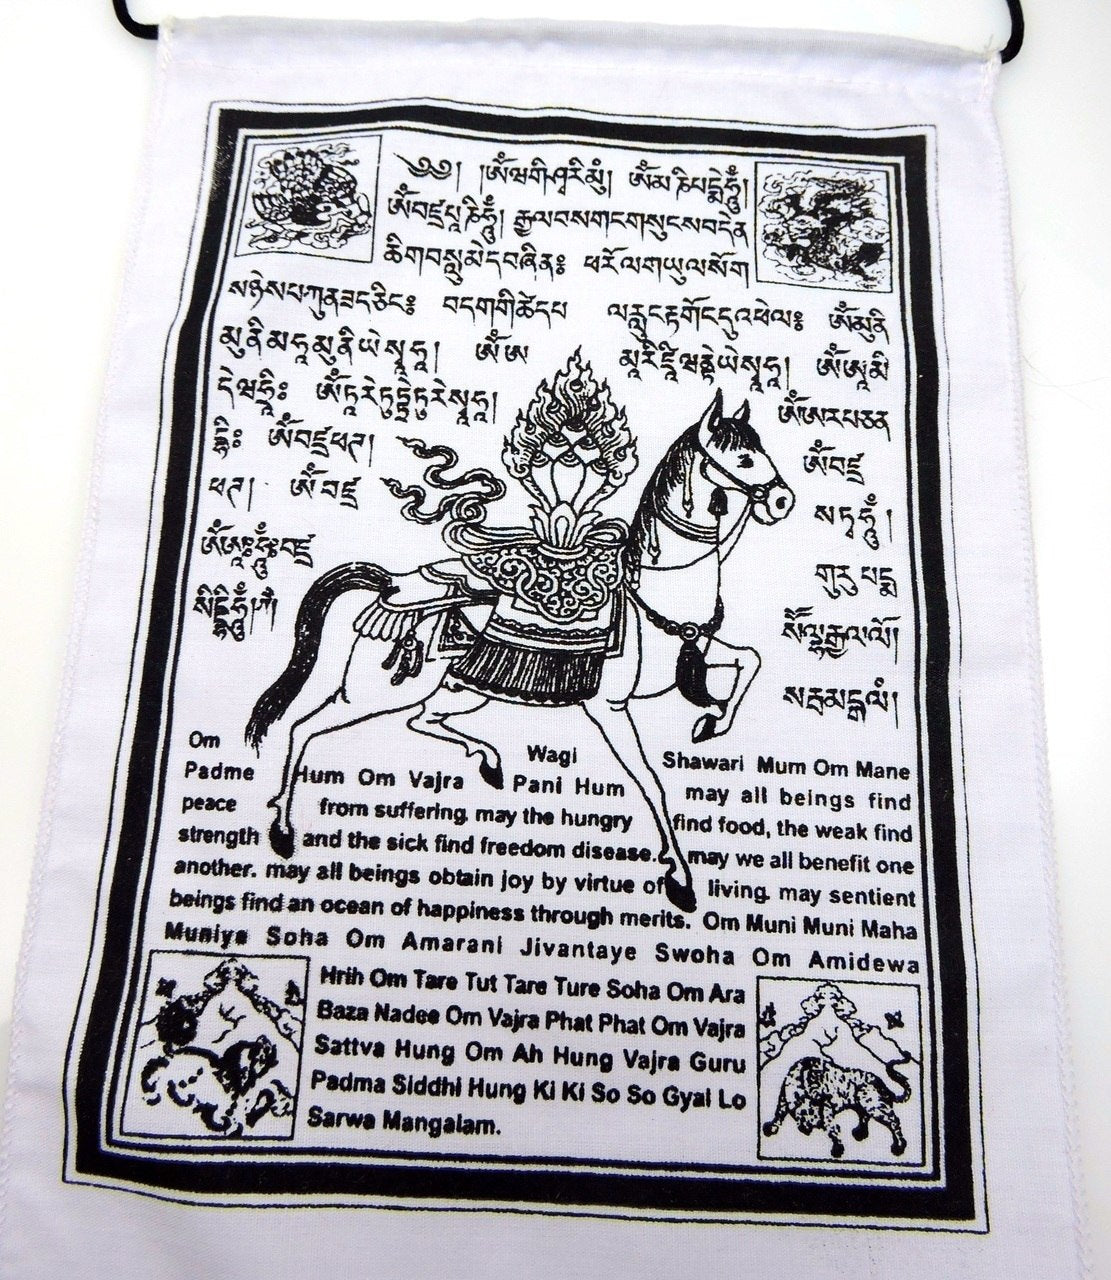 ༄༅། །ༀ་ཝཱ་གི་ཤྭ་རི་མུཾ། ༀ་མ་ཎི་པདྨེ་ཧཱུྃ།
ༀ་བཛྲ་པཱ་ཎི་ཧཱུྃ། རྒྱལ་བས་གང་གསུངས་བདེན
ཚིག་བསླུ་མེད་བཞིན༔ ཕར་ོལ་གཡུལ་སོག
བདག་གི་ཚེ་དཔ ལ་རླུང་རྟ་གོང་དུ་འཕེལ༔ ༀ་མུ་ནི
མུ་ནི་མ་ཧཱ་མུ་ནི་ཡེ་སྭཱ་ཧཱ། ༀ་ཨ
ༀ་ཨཱ་མི
དེ་ཝ་ཧྲཱིཿ ༀ་ཏཱ་རེ་ཏུཏྟཱ་རེ་ཏུ་རེ་སྭཱ་ཧཱ། ༀ་ཨ་ར་པ་ཙ་ན
དྷཱིཿ ༀ་བཛྲ་ཕཊ། ༀ་བཛྲ
ཕཊ། ༀ་བཛྲ སཏྭ་ཧཱུྃ།
ༀ་ཨཱཿ་ཧཱུྃ་བཛྲ གུ་རུ་པདྨ
སིདྡྷི་ཧཱུྃ།
སརྦ་མངྒ་ལཾ།
Om Wagi Shawari Mum Om Mane
Padme Hum Om Vajra Pani Hum may all beings find
peace from suffering. may the hungry find food, the weak find
strength and the sick find freedom disease. may we all benefit one
another. may all beings obtain joy by virtue of living. may sentient
beings find an ocean of happiness through merits. Om Muni Muni Maha
Muniye Soha Om Amarani Jivantaye Swoha Om Amidewa
Hrih Om Tare Tut Tare Ture Soha Om Ara
Baza Nadee Om Vajra Phat Phat Om Vajra
Sattva Hung Om Ah Hung Vajra Guru
Padma Siddhi Hung Ki Ki So So Gyal Lo
Sarwa Mangalam.